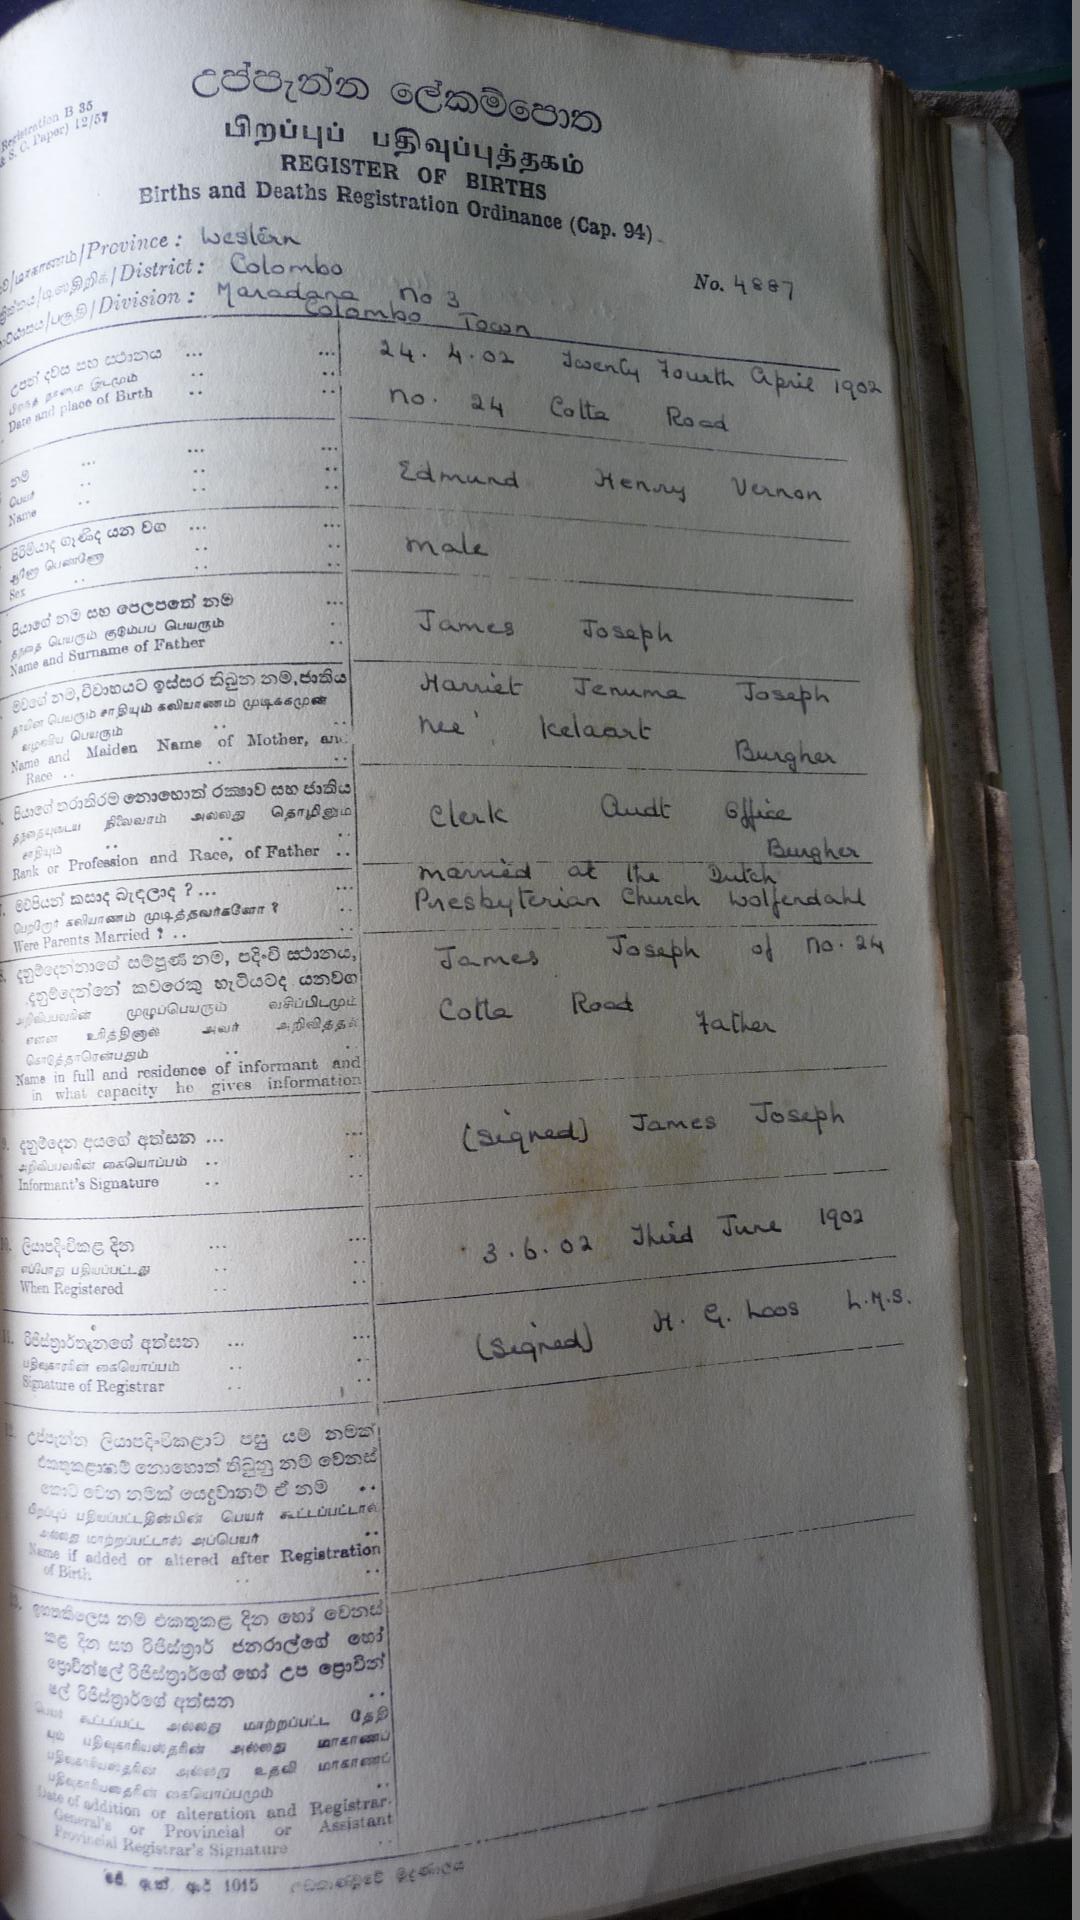 Registration B 35
& S. C. Paper) 12/57
උප්පැන්න ලේකම්පොත
பிறப்புப் பதிவுப்புத்தகம்
REGISTER OF BIRTHS
Births and Deaths Registration Ordinance (Cap. 94)
/மாகாணம்/Province : Western
/District : Colombo
No. 4887
/Division : Maradana No 3
Colombo Town
උපන් දවස සහ ස්ථානය ... ...
Date and place of Birth
24. 4.02 Twenty Fourth April 1902
No. 24 Cotta Road
නම ... ... ...
பெயர்
Name
Edmund Henry Vernon
පිරිමියාද ගෑණිද යන වග ... ...
ஆணோ பெண்ணோ
Sex
Male
පියාගේ නම සහ පෙලපතේ නම ...
தந்தை பெயரும் குடும்பப் பெயரும்
Name and Surname of Father
James Joseph
මවගේ නම, විවාහයට ඉස්සර තිබුන නම, ජාතිය
தாயின் பெயரும் சாதியும் கலியாணம் முடிக்கமுன்
வழங்கிய பெயரும்
Name and Maiden Name of Mother, and
Race ..
Harriet Jenuma Joseph
nee' Kelaart
Burgher
පියාගේ තරාතිරම නොහොත් රක්ෂාව සහ ජාතිය
தந்தையுடைய நிலைவரம் அல்லது தொழிலும்
சாதியும்
Rank or Profession and Race, of Father ..
Clerk Audt Office
Burgher
මව්පියන් කසාද බැඳලාද ? ... ...
பெற்றோர் கலியாணம் முடித்தவர்களோ ?
Were Parents Married ? ..
Married at the Dutch
Presbyterian Church Wolfendahl
දනුම්දෙන්නාගේ සම්පූර්ණ නම, පදිංචි ස්ථානය,
දනුම්දෙන්නේ කවරෙකු හැටියටද යනවග
அறிவிப்பவரின் முழுப்பெயரும் வசிப்பிடமும்
என்ன உரித்தினால் அவர் அறிவித்தல்
கொடுத்தாரென்பதும்
Name in full and residence of informant and
in what capacity he gives information
James Joseph of No. 24
Cotta Road
Father
9. දනුම්දෙන අයගේ අත්සන ... ...
அறிவிப்பவரின் கையொப்பம்
Informant's Signature
(Signed) James Joseph
10. ලියාපදිංචිකළ දින ... ...
எப்போது பதியப்பட்டது
When Registered
3.6.02 Third June 1902
11. රිජිස්ත්‍රාර්තැනගේ අත්සන ... ...
பதிவுகாரரின் கையொப்பம்
Signature of Registrar
(Signed) H. G. Loos L.M.S.
12. උප්පැන්න ලියාපදිංචිකළාට පසු යම් නමක්
එකතුකළානම් නොහොත් තිබුනු නම වෙනස්
කොට වෙන නමක් යෙදුවානම් ඒ නම ..
பிறப்புப் பதியப்பட்டதின்பின் பெயர் கூட்டப்பட்டால்
அல்லது மாற்றப்பட்டால் அப்பெயர்
Name if added or altered after Registration
of Birth
13. ඉහතකීලෙස නම එකතුකළ දින හෝ වෙනස්
කළ දින සහ රිජිස්ත්‍රාර් ජනරාල්ගේ හෝ
ප්‍රොවින්ෂල් රිජිස්ත්‍රාර්ගේ හෝ උප ප්‍රොවින්
ෂල් රිජිස්ත්‍රාර්ගේ අත්සන
பெயர் கூட்டப்பட்ட அல்லது மாற்றப்பட்ட தேதி
Date of addition or alteration and Registrar-
General's or Provincial or Assistant
Provincial Registrar's Signature
1015